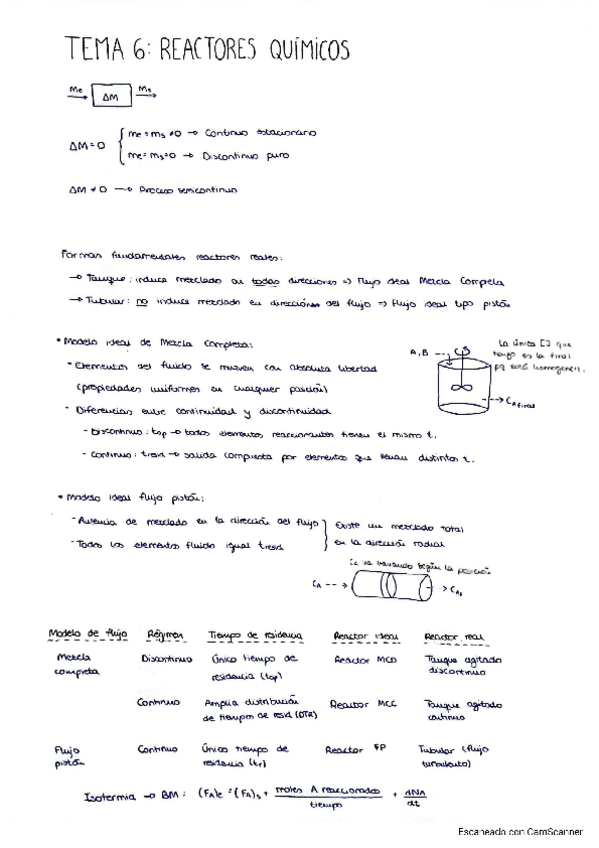 TEMA 6: REACTORES QUÍMICOS
Me ΔM Ms
ΔM=0 { me=ms≠0 → Continuo estacionario
me=ms=0 → Discontinuo puro
ΔM≠0 → Proceso semicontinuo
Formas fundamentales reactores reales:
→ Tanque: induce mezclado en todas direcciones => Flujo ideal Mezcla Completa
→ Tubular: no induce mezclado en direcciones del flujo => Flujo ideal tipo pistón
• Modelo ideal de Mezcla completa:
- Elementos del fluido se mueven con absoluta libertad
(propiedades uniformes en cualquier posición)
- Diferencias entre continuidad y discontinuidad
- Discontinuo: top → todos elementos reaccionantes tienen el mismo t.
- Continuo: tresid → salida compuesta por elementos que llevan distintos t.
A, B
La única [] que
tengo es la final
pq está homogenei.
CA final
• Modelo ideal flujo pistón:
- Ausencia de mezclado en la dirección del flujo } Existe un mezclado total
- Todos los elementos fluido igual tresid } en la dirección radial
CA va variando según la posición
CA --> --> CAs
Modelo de flujo Régimen Tiempo de residencia Reactor ideal Reactor real
Mezcla completa Discontinuo Único tiempo de residencia (top) Reactor MCD Tanque agitado discontinuo
Continuo Amplia distribución de tiempos de resid (DTR) Reactor MCC Tanque agitado continuo
Flujo pistón Continuo Único tiempo de residencia (tr) Reactor FP Tubular (flujo turbulento)
Isotermia → BM: (FA)e = (FA)s + moles A reaccionados / tiempo + dNA / dt
Escaneado con CamScanner